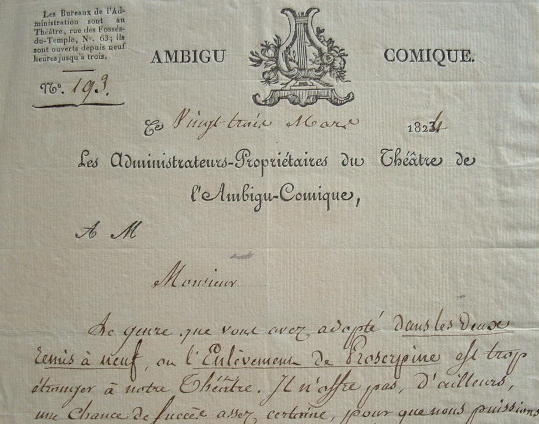 Les Bureaux de l'Ad-
ministration sont au
Théâtre, rue des Fossés-
du-Temple, N°. 63; ils
sont ouverts depuis neuf
heures jusqu'à trois.
N°. 193.
AMBIGU COMIQUE.
Ce Vingt-trois Mars 1824
Les Administrateurs-Propriétaires du Théâtre de
l'Ambigu-Comique,
A M
Monsieur
Le genre que vous avez adopté dans les deux
remis à neuf, ou l'Enlèvement de Proserpine est trop
étranger à notre Théâtre. Il n'offre pas, d'ailleurs,
une chance de succès assez certaine, pour que nous puissions